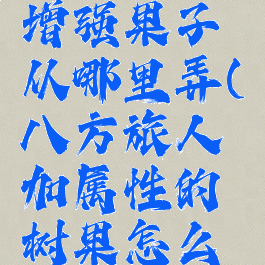 增强果子
从哪里弄(
八方旅人
加属性的
树果怎么